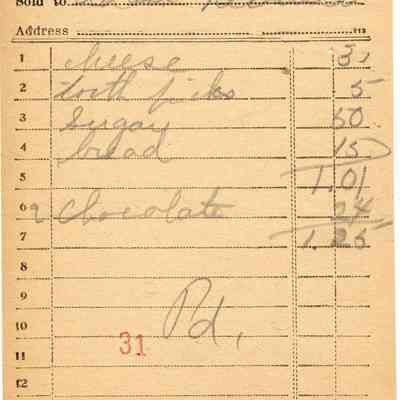 Sold to
Address
1 cheese 31
2 tooth picks 5
3 Sugar 50
4 bread 15
5 1.01
6 2 Chocolate 24
7 1.25
8
9
10 Pd.
31
11
12